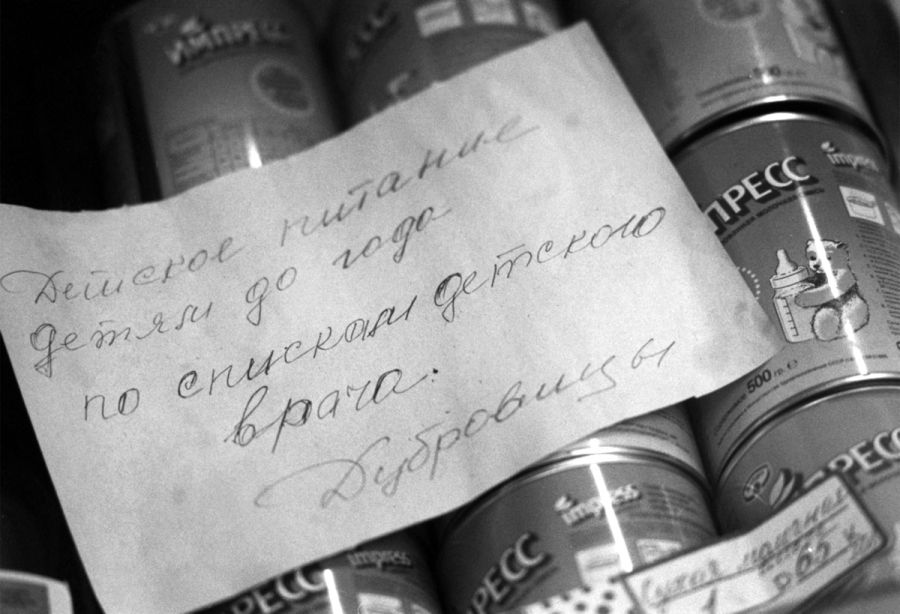 ИМПРЕСС
Детское питание
детям до года
по спискам детского
врача.
Дубровицы
ПРЕСС
impress
500 гр. e
impress
ПРЕСС
impress
ПРЕСС
ПРЕСС
Сухая молочная